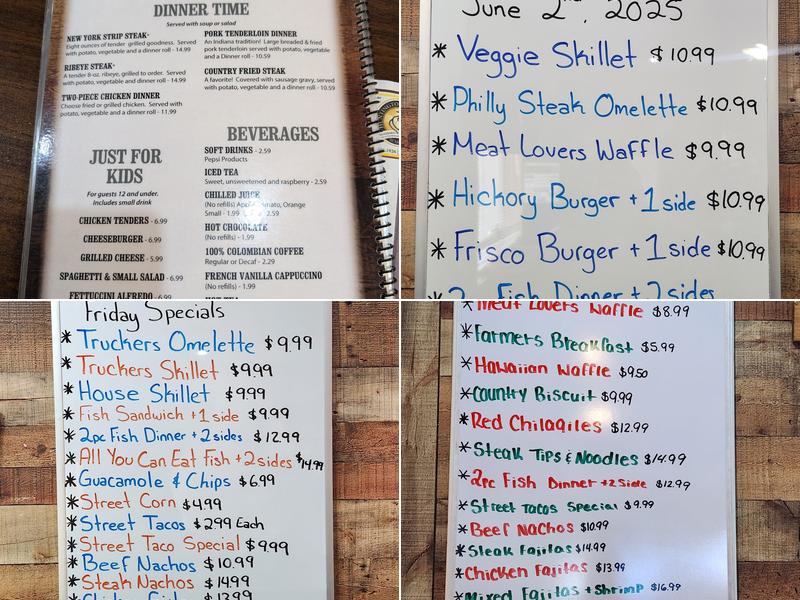 DINNER TIME
Served with soup or salad
NEW YORK STRIP STEAK*
Eight ounces of tender grilled goodness. Served
with potato, vegetable and dinner roll - 14.99
RIBEYE STEAK*
A tender 8-oz. ribeye, grilled to order. Served
with potato, vegetable and dinner roll - 14.99
TWO-PIECE CHICKEN DINNER
Choose fried or grilled chicken. Served with
potato, vegetable and a dinner roll - 11.99
PORK TENDERLOIN DINNER
An Indiana tradition! Large breaded & fried
pork tenderloin served with potato, vegetable
and a Dinner roll - 10.59
COUNTRY FRIED STEAK
A favorite! Covered with sausage gravy, served
with potato, vegetable and a dinner roll - 10.59
JUST FOR
KIDS
For guests 12 and under.
Includes small drink
CHICKEN TENDERS - 6.99
CHEESEBURGER - 6.99
GRILLED CHEESE - 5.99
SPAGHETTI & SMALL SALAD - 6.99
FETTUCINI ALFREDO
BEVERAGES
SOFT DRINKS - 2.59
Pepsi Products
ICED TEA
Sweet, unsweetened and raspberry - 2.59
CHILLED JUICE
(No refills) Apple, Tomato, Orange
Small - 1.99 2.59
HOT CHOCOLATE
(No refills) - 1.99
100% COLOMBIAN COFFEE
Regular or Decaf - 2.29
FRENCH VANILLA CAPPUCCINO
(No refills) - 1.99
June 2nd, 2025
* Veggie Skillet $10.99
* Philly Steak Omelette $10.99
* Meat Lovers Waffle $9.99
* Hickory Burger +1 side $10.99
* Frisco Burger +1 side $10.99
2pc Fish Dinner +2 sides
Friday Specials
* Truckers Omelette $9.99
* Truckers Skillet $9.99
* House Skillet $9.99
* Fish Sandwich +1 side $9.99
* 2pc Fish Dinner +2 sides $12.99
* All You Can Eat Fish +2 sides $14.99
* Guacamole & Chips $6.99
* Street Corn $4.99
* Street Tacos $2.99 Each
* Street Taco Special $9.99
* Beef Nachos $10.99
* Steak Nachos $14.99
Meat Lovers Waffle $8.99
* Farmers Breakfast $5.99
* Hawaiian Waffle $9.50
* Country Biscuit $9.99
* Red Chilaqiles $12.99
* Steak Tips & Noodles $14.99
* 2pc Fish Dinner +2 side $12.99
* Street Tacos Special $9.99
* Beef Nachos $10.99
* Steak Fajitas $14.99
* Chicken Fajitas $13.99
* Mixed Fajitas + Shrimp $16.99